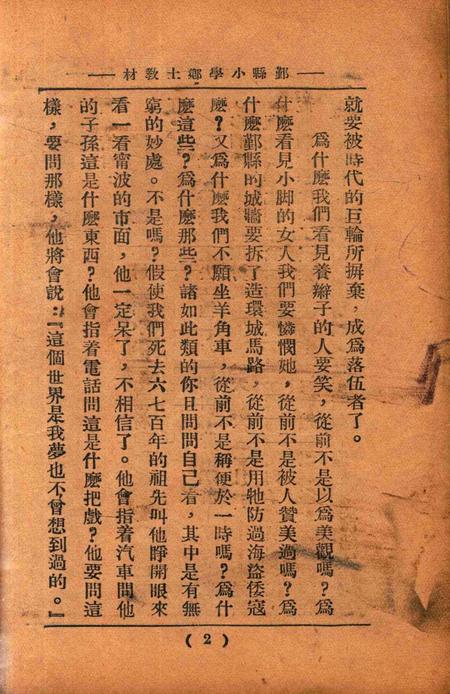 鄞縣小學鄉土敎材
就要被時代的巨輪所摒棄，成爲落伍者了。
爲什麽我們看見養辮子的人要笑，從前不是以爲美觀嗎？爲
什麽看見小脚的女人我們要憐憫她，從前不是被人贊美過嗎？爲
什麽鄞縣的城牆要拆了造環城馬路，從前不是用牠防過海盜倭寇
麽？又爲什麽我們不願坐羊角車，從前不是稱便於一時嗎？爲什
麽這些？爲什麽那些？諸如此類的你且問問自己看，其中是有無
窮的妙處。不是嗎？假使我們死去六七百年的祖先叫他睜開眼來
看一看甯波的市面，他一定呆了，不相信了。他會指着汽車問他
的子孫這是什麽東西？他會指着電話問這是什麽把戲？他要問這
樣，要問那樣，他將會說：『這個世界是我夢也不曾想到過的。』
(2)